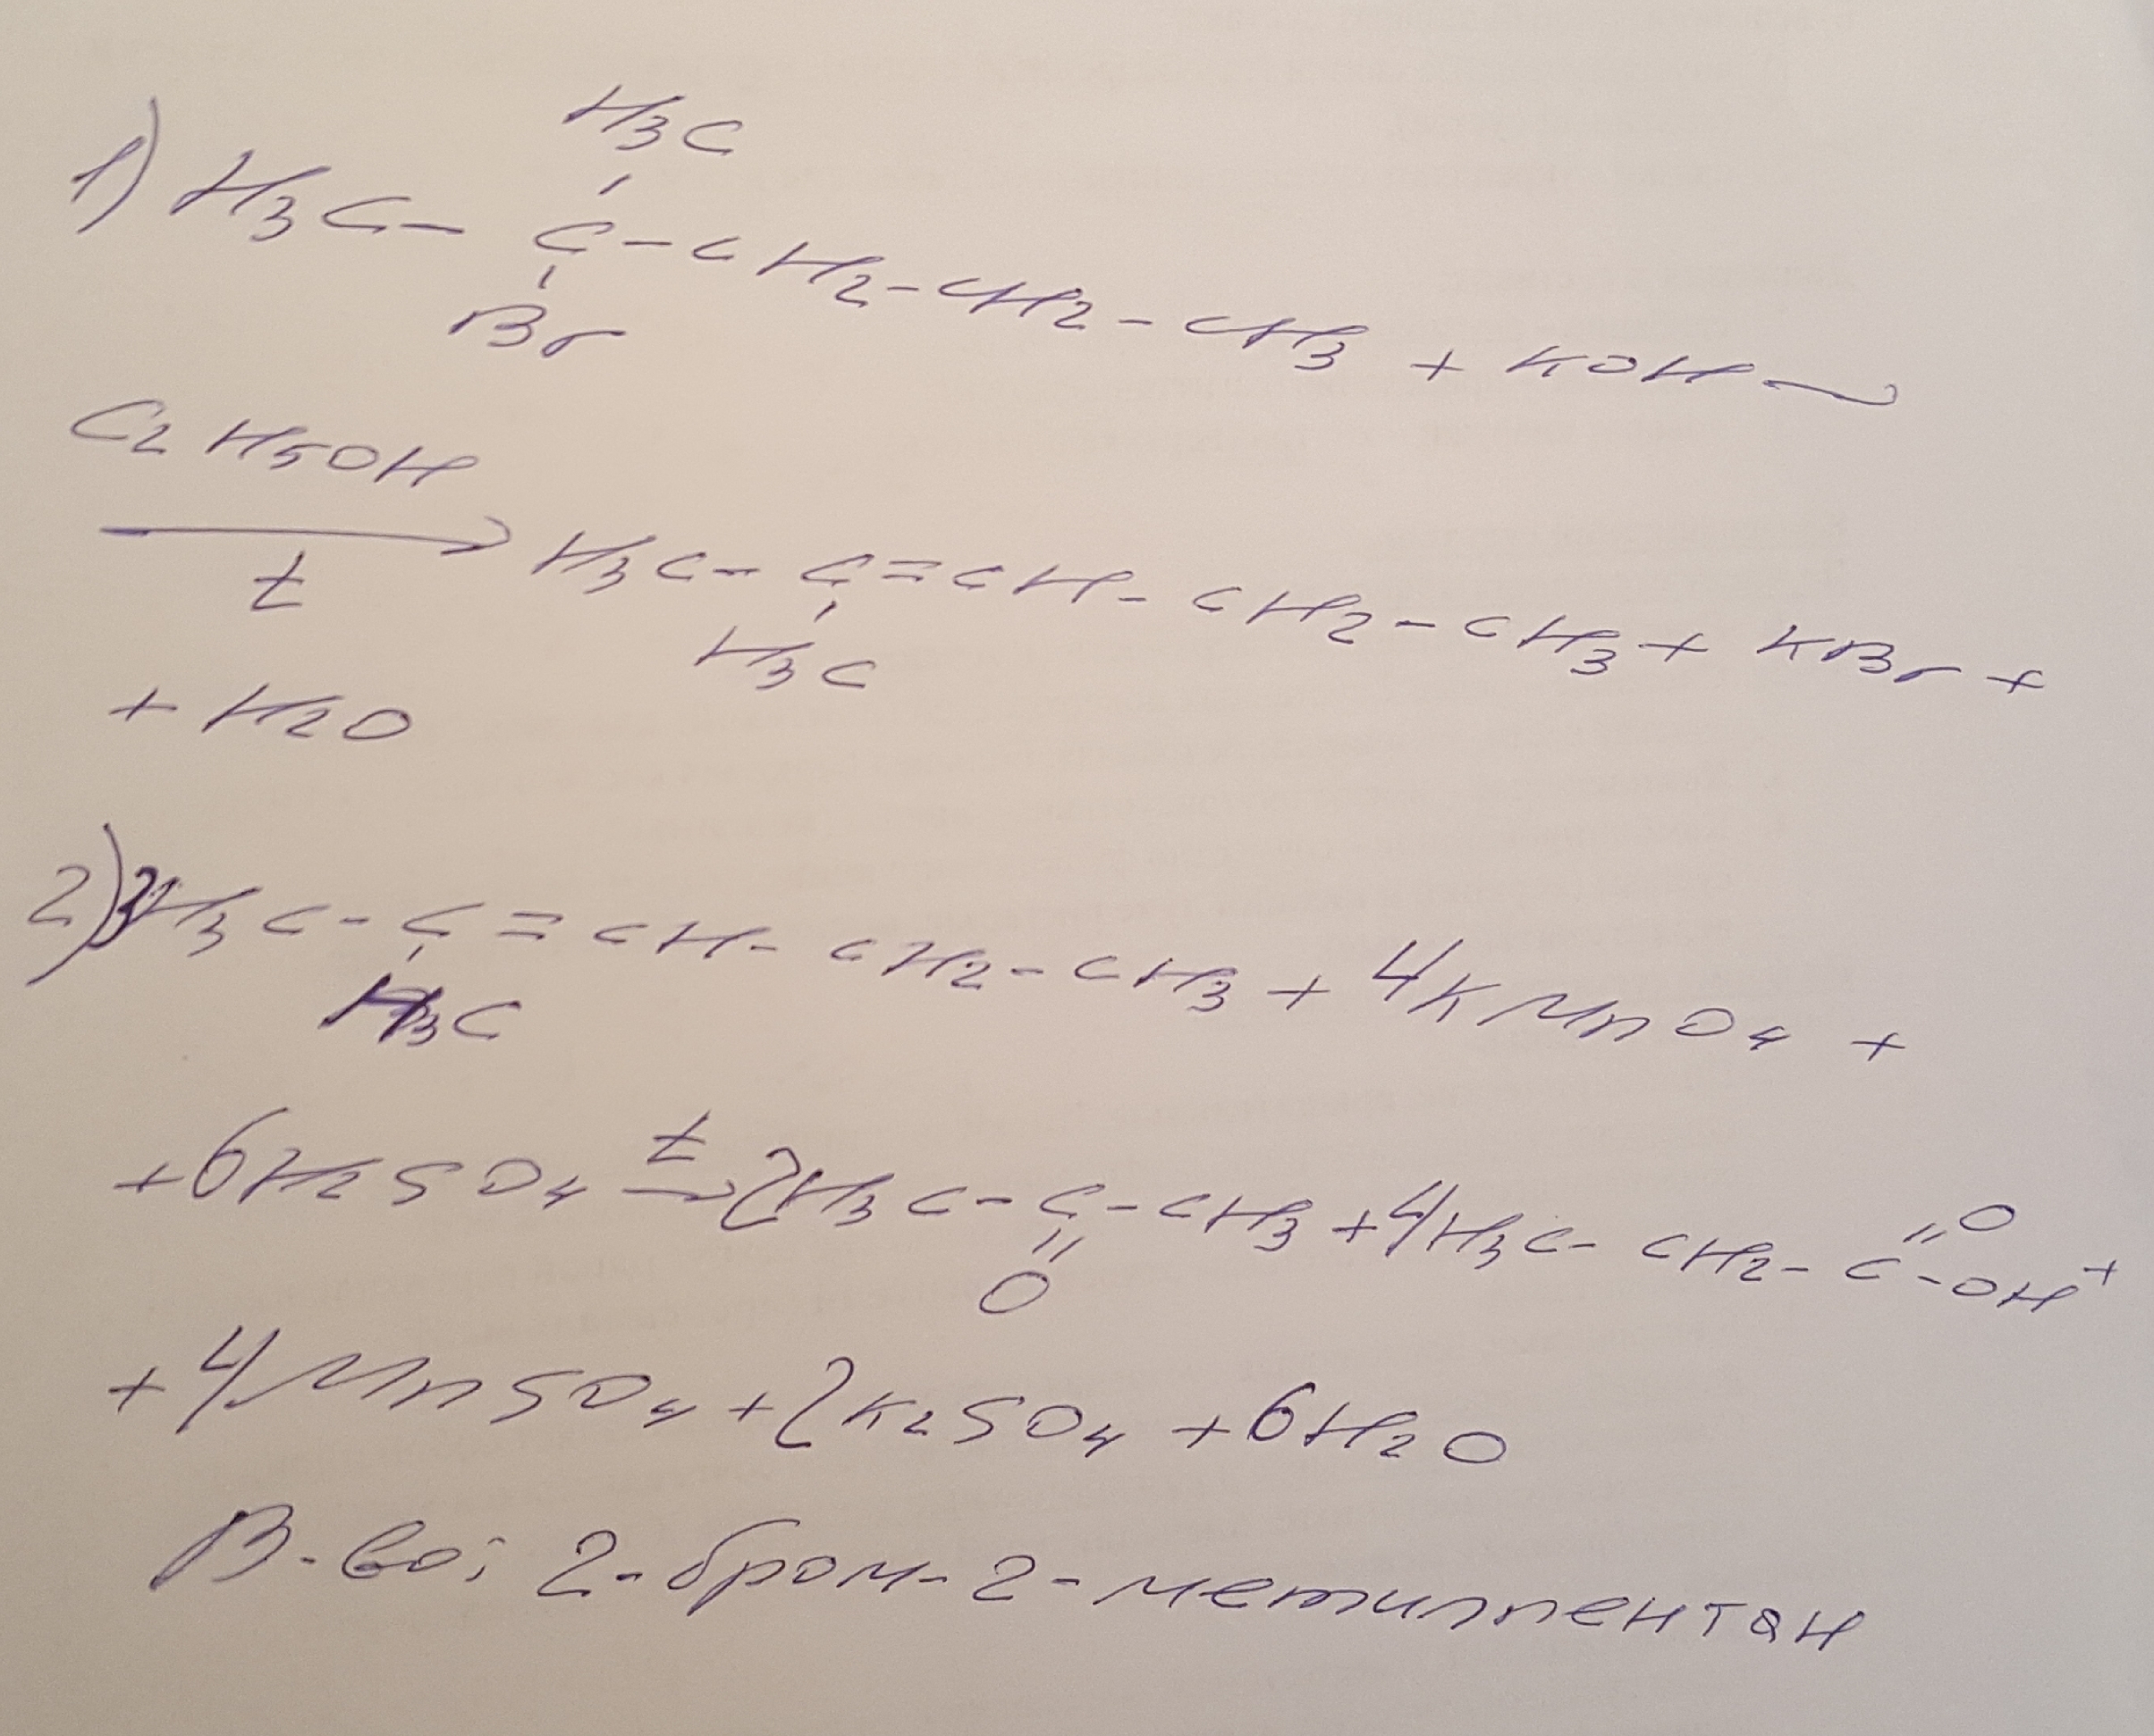 H3C
1) H3C - C - CH2 - CH2 - CH3 + KOH
Br
C2H5OH
→ H3C - C = CH - CH2 - CH3 + KBr +
t
H3C
+ H2O
2) H3C - C = CH - CH2 - CH3 + 4KMnO4 +
H3C
t
+ 6H2SO4 → 2H3C - C - CH3 + 4H3C - CH2 - C - OH +
O
O
+ 4MnSO4 + 2K2SO4 + 6H2O
В-во: 2-бром-2-метилпентан